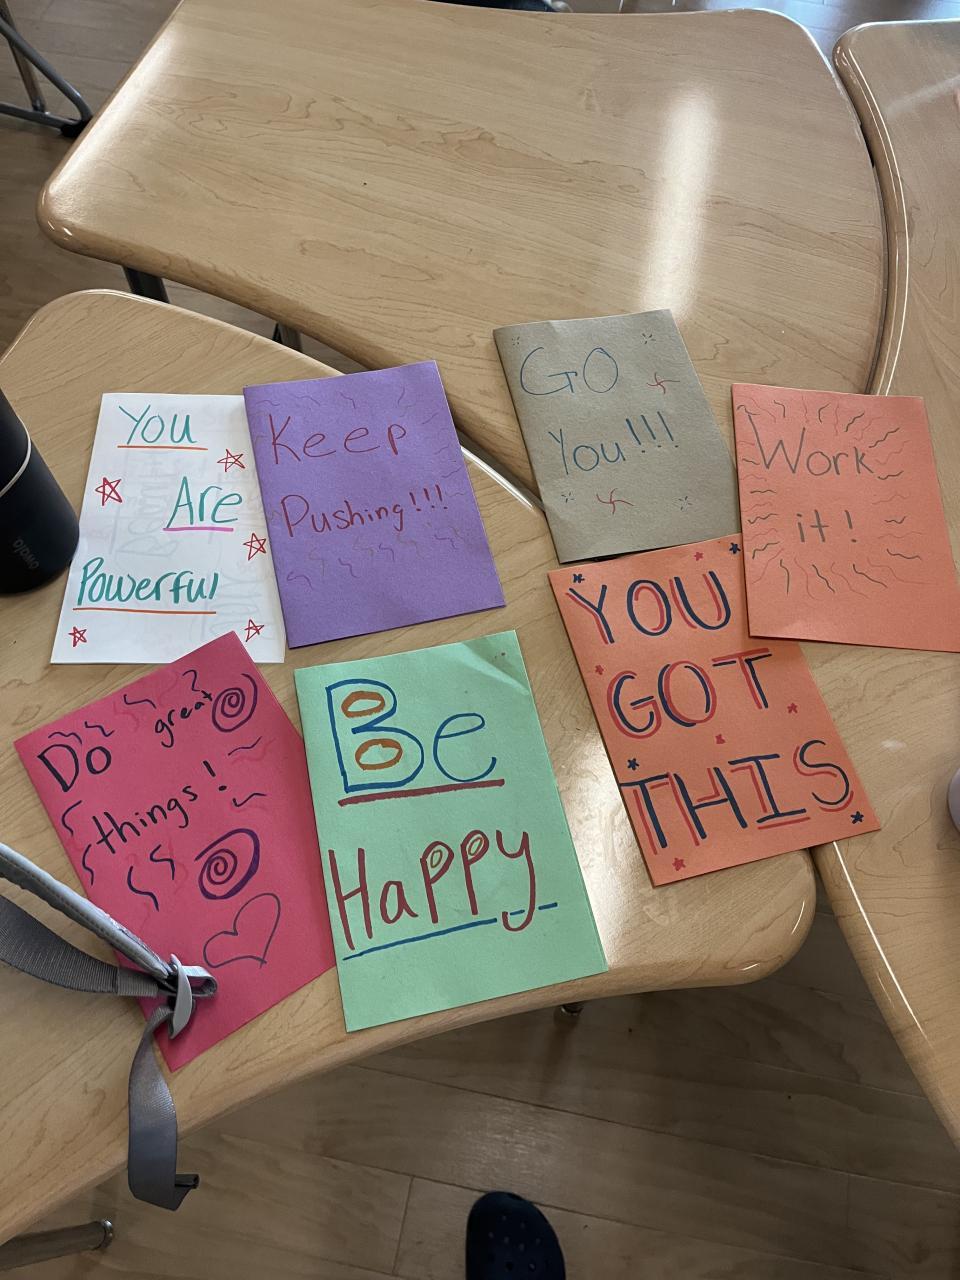 You
Are
Powerful
Keep
Pushing!!!
GO
You!!!
Work
it!
Do great
things!
Be
Happy
YOU
GOT
THIS